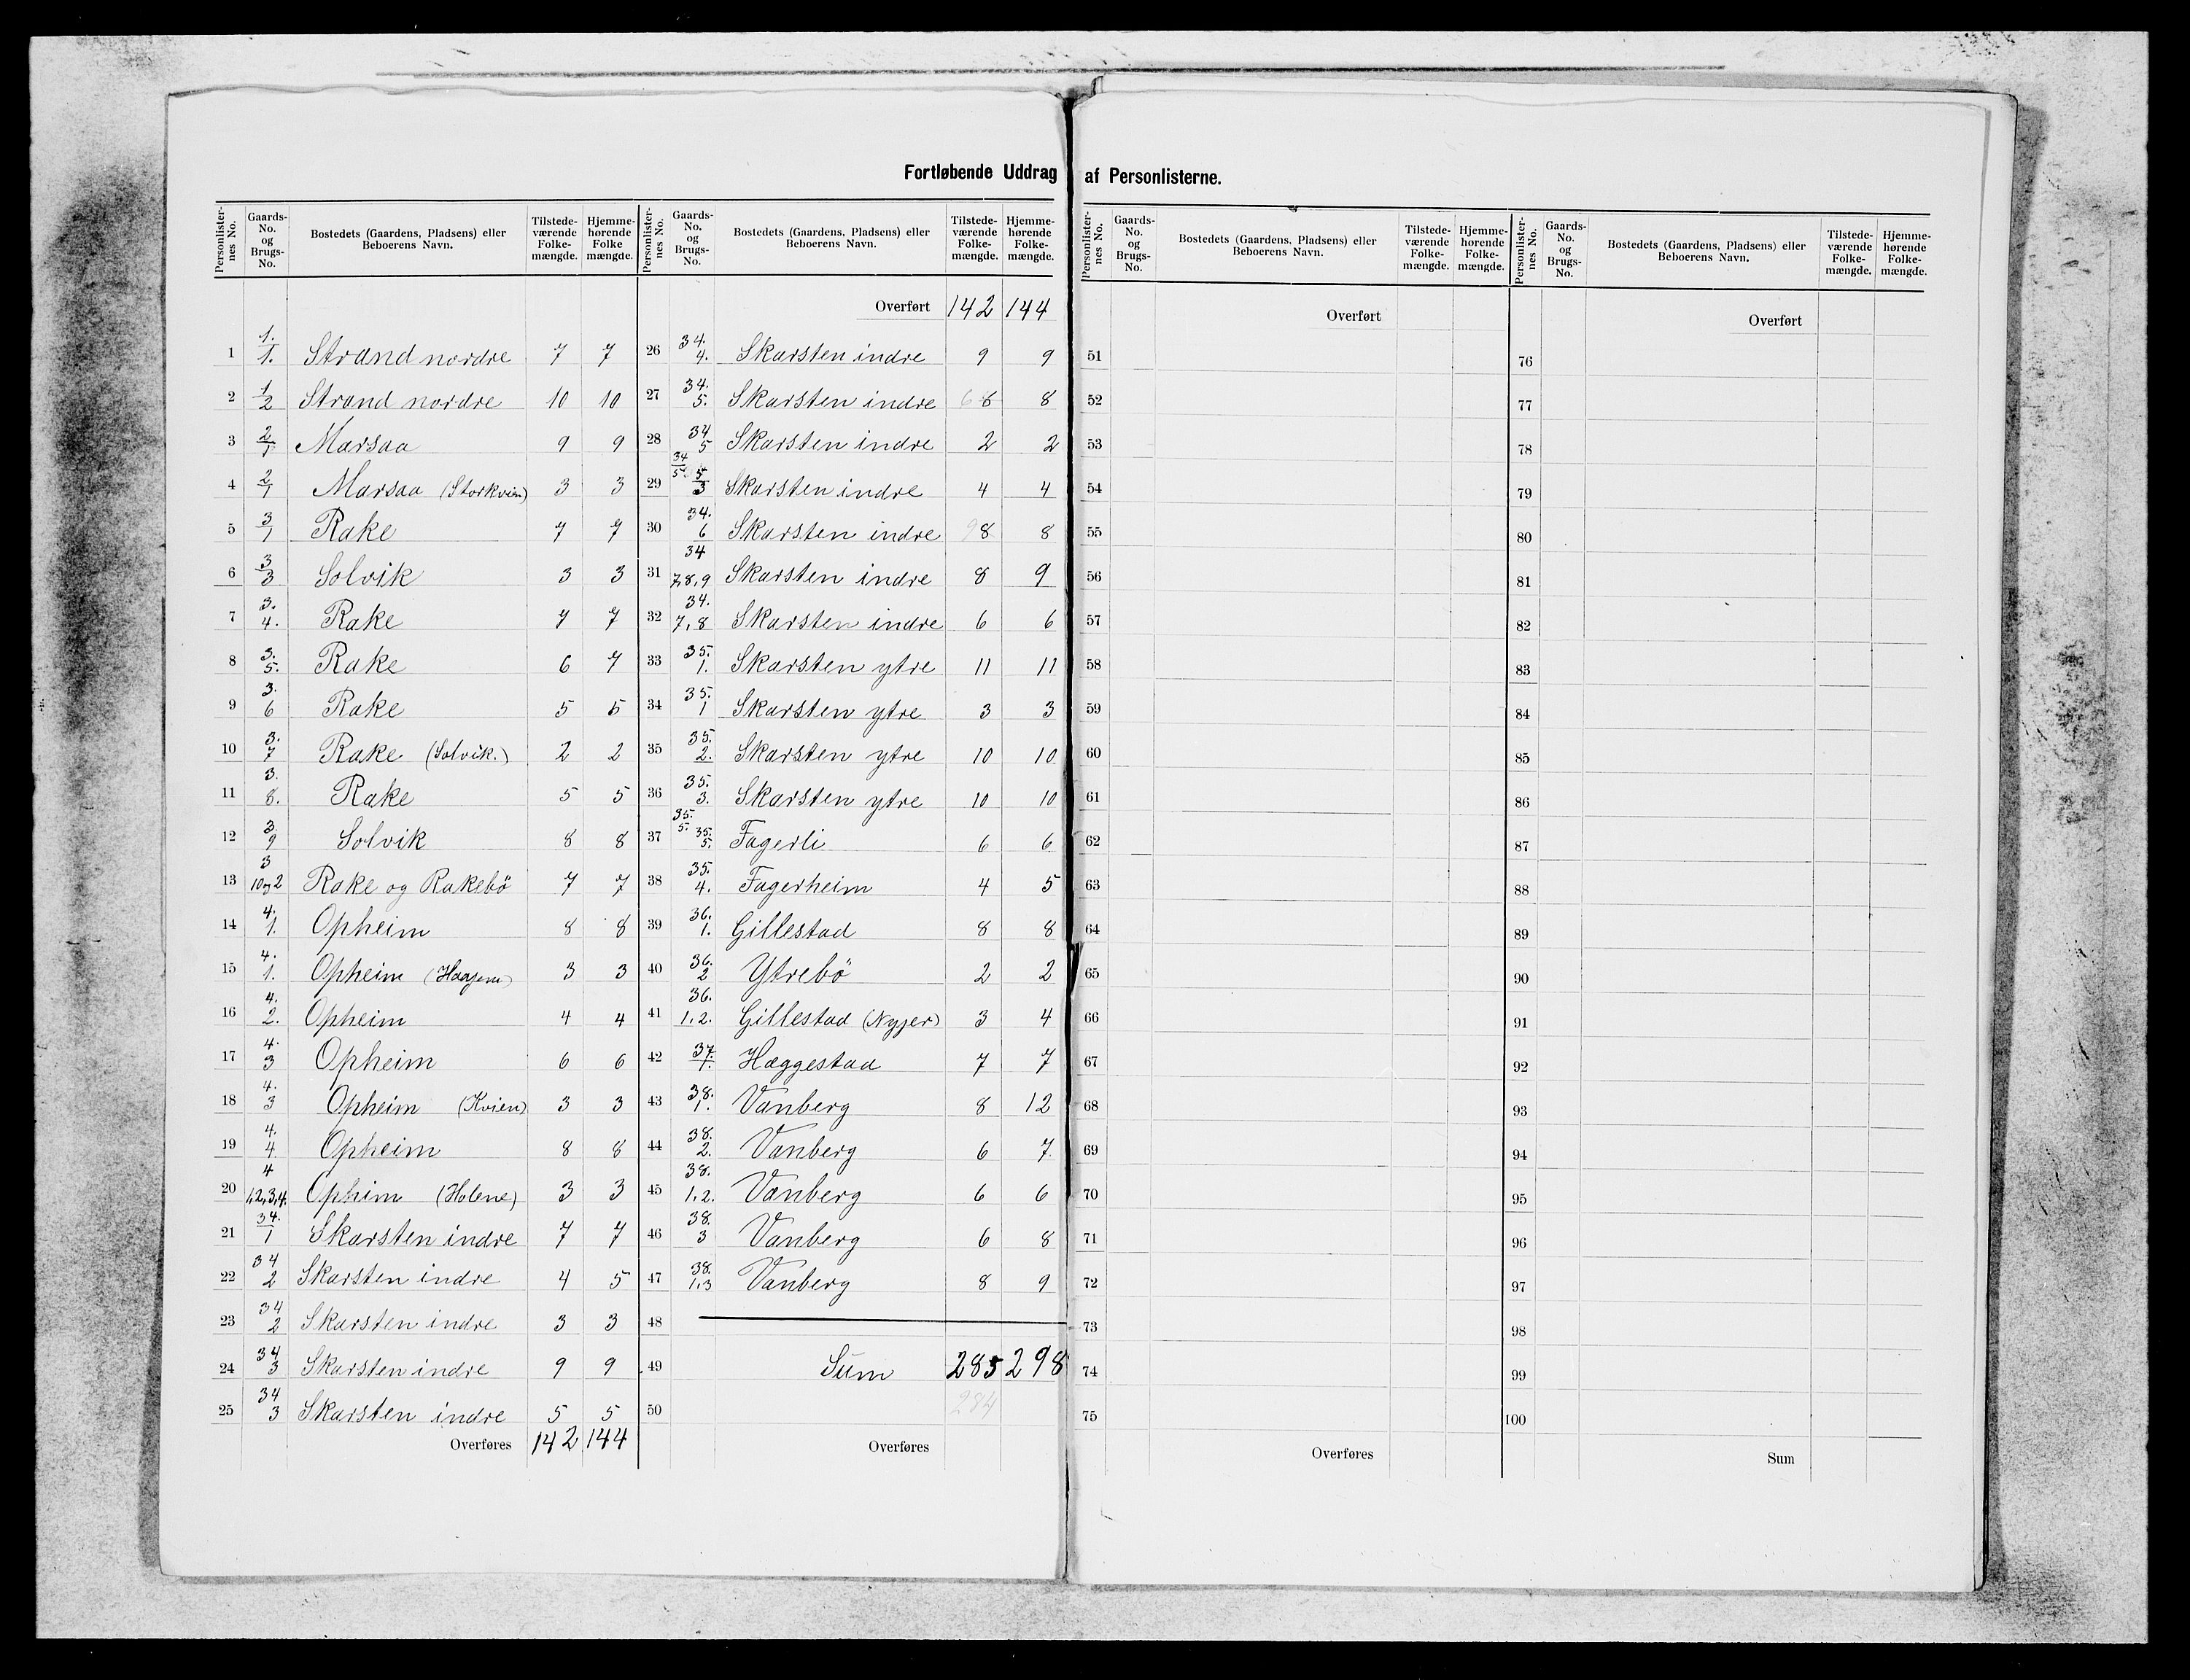 Fortløbende Uddrag af Personlisterne.
Personlisternes No. Gaards-No. og Brugs-No. Bostedets (Gaardens, Pladsens) eller Beboerens Navn. Tilstedeværende Folkemængde. Hjemmehørende Folkemængde.
1 1./1. Strand nordre 7 7
2 1/2 Strand nordre 10 10
3 2/1 Marsaa 9 9
4 2/1 Marsaa (Storkvien) 3 3
5 3/1 Rake 7 7
6 3/3 Solvik 3 3
7 3./4. Rake 7 7
8 3./5. Rake 6 7
9 3./6 Rake 5 5
10 3./7 Rake (Solvik.) 2 2
11 3./8. Rake 5 5
12 3/9 Solvik 8 8
13 3/10 og 2 Rake og Rakebö 7 7
14 4./1. Opheim 8 8
15 4./1. Opheim 3 3
16 4./2. Opheim 4 4
17 4./3 Opheim 6 6
18 4./3 Opheim (Kvien) 3 3
19 4./4 Opheim 8 8
20 4/1,2,3,4. Ophim (Holene) 3 3
21 34./1 Skarsten indre 7 7
22 34/2 Skarsten indre 4 5
23 34/2 Skarsten indre 3 3
24 34/3 Skarsten indre 9 9
25 34/3 Skarsten indre 5 5
Overføres 142 144
Personlisternes No. Gaards-No. og Brugs-No. Bostedets (Gaardens, Pladsens) eller Beboerens Navn. Tilstedeværende Folkemængde. Hjemmehørende Folkemængde.
Overført 142 144
26 34./4. Skarsten indre 9 9
27 34./5. Skarsten indre 6 8 8
28 34/5 Skarsten indre 2 2
29 34/5 5/3 Skarsten indre 4 4
30 34./6 Skarsten indre 9 8 8
31 34/7,8,9 Skarsten indre 8 9
32 34./7,8 Skarsten indre 6 6
33 35./1. Skarsten ytre 11 11
34 35./1 Skarsten ytre 3 3
35 35./2. Skarsten ytre 10 10
36 35./3. Skarsten ytre 10 10
37 35./5. 35./5. Fagerli 6 6
38 35./4. Fagerheim 4 5
39 36./1. Gillestad 8 8
40 36./2 Ytrebö 2 2
41 36./1,2. Gillestad (Nyjer) 3 4
42 37./1. Hæggestad 7 7
43 38./1. Vanberg 8 12
44 38./2. Vanberg 6 7
45 38./1,2. Vanberg 6 6
46 38./3 Vanberg 6 8
47 38./1,3 Vanberg 8 9
48
49 Sum 285 298
50 284
Overføres
Personlisternes No. Gaards-No. og Brugs-No. Bostedets (Gaardens, Pladsens) eller Beboerens Navn. Tilstedeværende Folkemængde. Hjemmehørende Folkemængde.
Overført
51
52
53
54
55
56
57
58
59
60
61
62
63
64
65
66
67
68
69
70
71
72
73
74
75
Overføres
Personlisternes No. Gaards-No. og Brugs-No. Bostedets (Gaardens, Pladsens) eller Beboerens Navn. Tilstedeværende Folkemængde. Hjemmehørende Folkemængde.
Overført
76
77
78
79
80
81
82
83
84
85
86
87
88
89
90
91
92
93
94
95
96
97
98
99
100
Sum